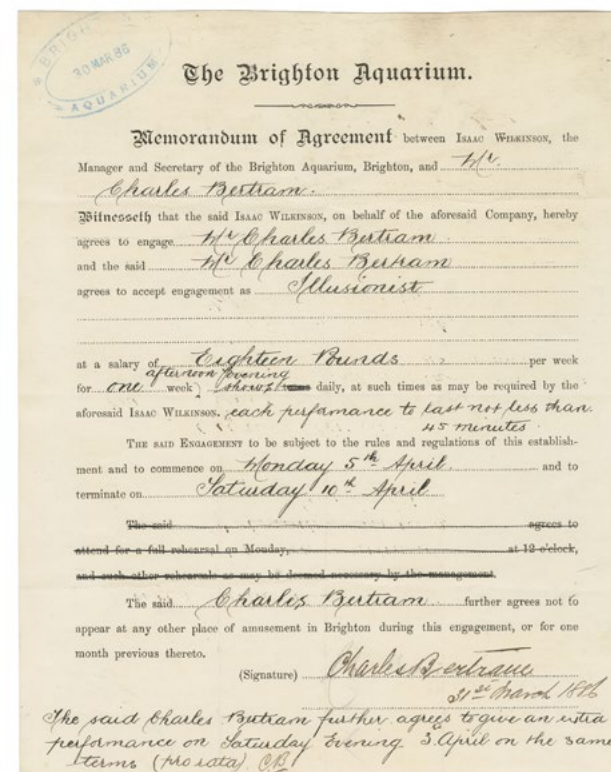 BRIGHTON
30 MAR 86
AQUARIUM
The Brighton Aquarium.
Memorandum of Agreement between ISAAC WILKINSON, the
Manager and Secretary of the Brighton Aquarium, Brighton, and Mr.
Charles Bertram.
Witnesseth that the said ISAAC WILKINSON, on behalf of the aforesaid Company, hereby
agrees to engage Mr Charles Bertram
and the said Mr Charles Bertram
agrees to accept engagement as Illusionist
at a salary of Eighteen Pounds per week
afternoon & evening
for one week) shows daily, at such times as may be required by the
aforesaid ISAAC WILKINSON. each performance to last not less than
45 minutes.
THE SAID ENGAGEMENT to be subject to the rules and regulations of this establish-
ment and to commence on Monday 5th April. and to
terminate on Saturday 10th April
The said agrees to
attend for a full rehearsal on Monday, at 12 o'clock,
and such other rehearsals as may be deemed necessary by the management.
The said Charles Bertram further agrees not to
appear at any other place of amusement in Brighton during this engagement, or for one
month previous thereto.
(Signature) Charles Bertram
31st March 1886
The said Charles Bertram further agrees to give an extra
performance on Saturday Evening 3d April on the same
terms (pro rata) CB